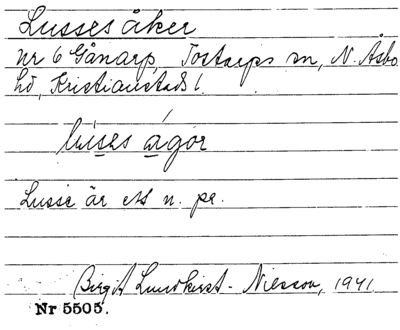 Lusses åker
nr 6 Gånarp, Tostarps sn, N. Åsbo
hd, Kristianstads l.
lúses ágor
Lusse är ett n. pr.
Birgit Lundkvist-Nilsson, 1941.
Nr 5505.